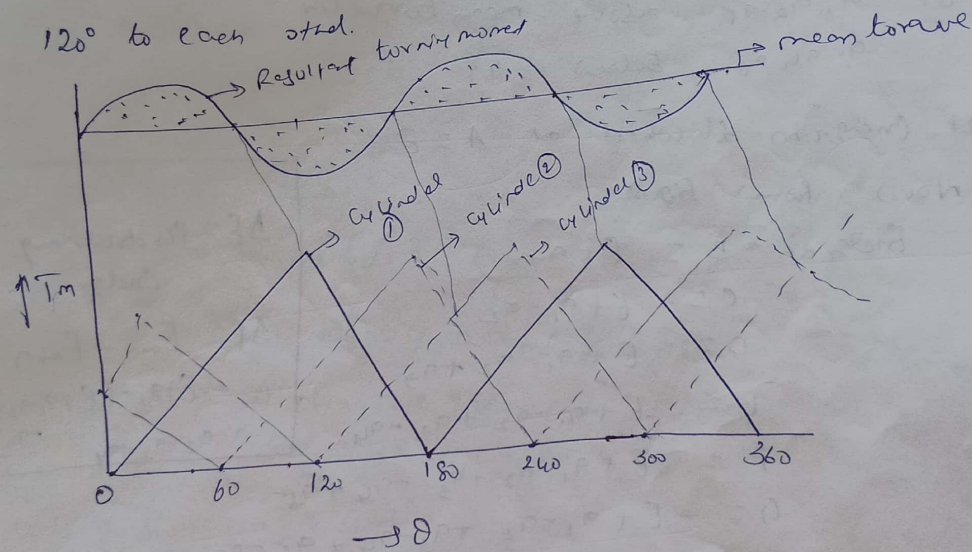 120° to each other.
Resultant turning moment
mean torque
cylinder
①
cylinder ②
cylinder ③
↑Tm
0 60 120 180 240 300 360
→ θ